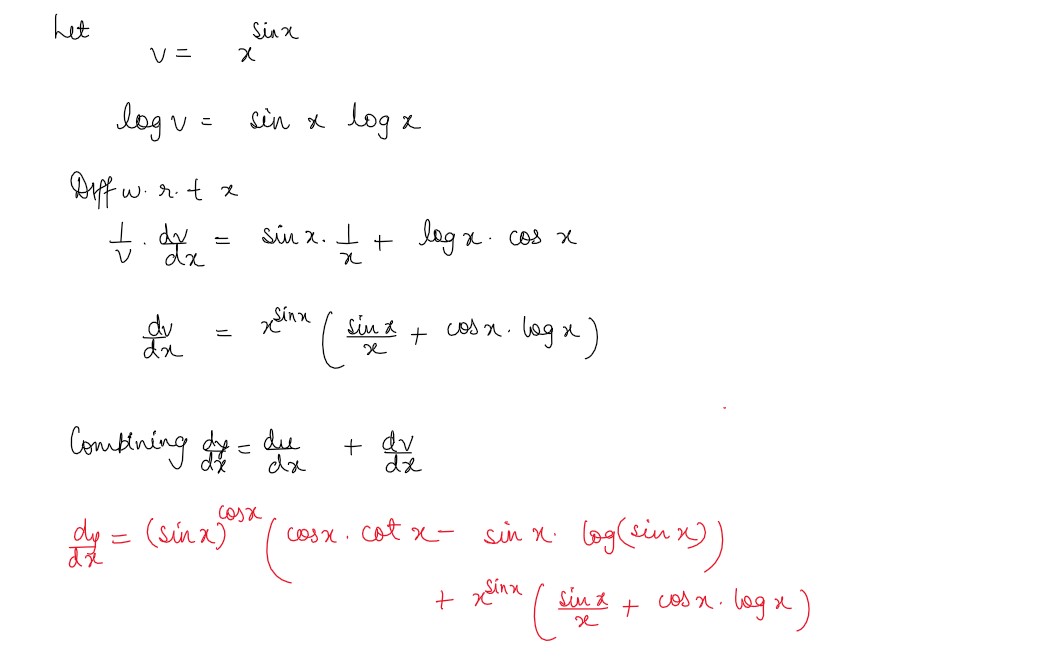 Let
v = x^{sin x}
log v = sin x log x
Diff w. r. t x
1/v . dv/dx = sin x . 1/x + log x . cos x
dv/dx = x^{sin x} ( sin x/x + cos x . log x )
Combining dy/dx = du/dx + dv/dx
dy/dx = (sin x)^{cos x} ( cos x . cot x - sin x . log(sin x) )
+ x^{sin x} ( sin x/x + cos x . log x )